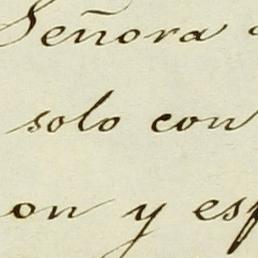 Señora
solo con
on y esp